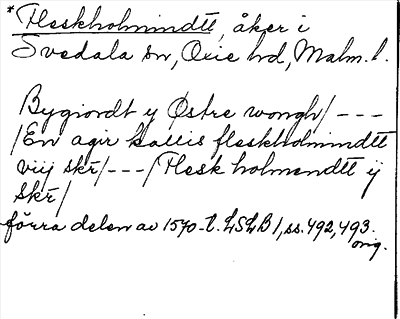 *Fleskholmindtt, åker i
Svedala sn, Oxie hd, Malm. l.
Bygiordt y Østre wongh/---
/En agir kallis fleskholmindtt
viij skr/---/Flesk holmendtt ij
skr/
förra delen av 1570-t. LSLB 1, ss. 492, 493.
orig.